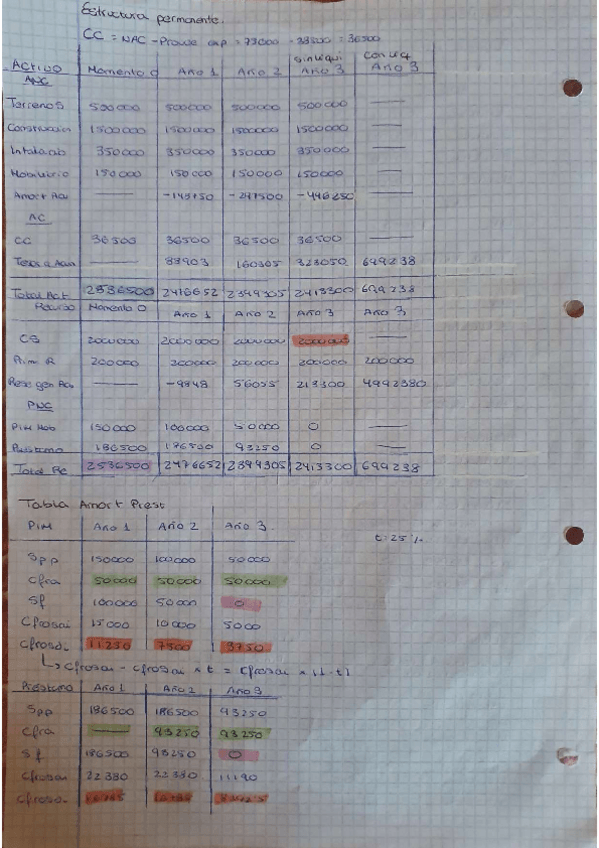 Estructura permanente.
CC = NAC - Provee esp = 73000 - 38500 = 36500
Activo Momento 0 Año 1 Año 2 sin liqui Año 3 con liq Año 3
ANC
Terrenos 500000 500000 500000 500000 —
Construccion 1500000 1500000 1500000 1500000 —
Intalacio 350000 350000 350000 350000 —
Mobiliario 150000 150000 150000 150000 —
Amort Acu — -148750 -297500 -446250 —
AC
CC 36500 36500 36500 36500 —
— 88903 160305 323050 699238
Total Act 2536500 2476652 2399305 2413300 699238
Recurso Momento 0 Año 1 Año 2 Año 3 Año 3
CS 2000000 2000000 2000000 2000000 —
Prim R 200000 200000 200000 200000 200000
Rese gen Acu — -9848 56055 213300 4992380
PNC
PIM Mob 150000 100000 50000 0 —
Préstamo 186500 186500 93250 0 —
Total 2536500 2476652 2399305 2413300 699238
Tabla Amort Prest
PIM Año 1 Año 2 Año 3.
t: 25%
Spp 150000 100000 50000
Cfra 50000 50000 50000
Sf 100000 50000 0
Cfrosai 15000 10000 5000
Cfrosdi 11250 7500 3750
↳ Cfrosai - Cfrosai × t = Cfrosai × (1-t)
Préstamo Año 1 Año 2 Año 3
Spp 186500 186500 93250
Cfra — 93250 93250
Sf 186500 93250 0
Cfrosai 22380 22380 11190